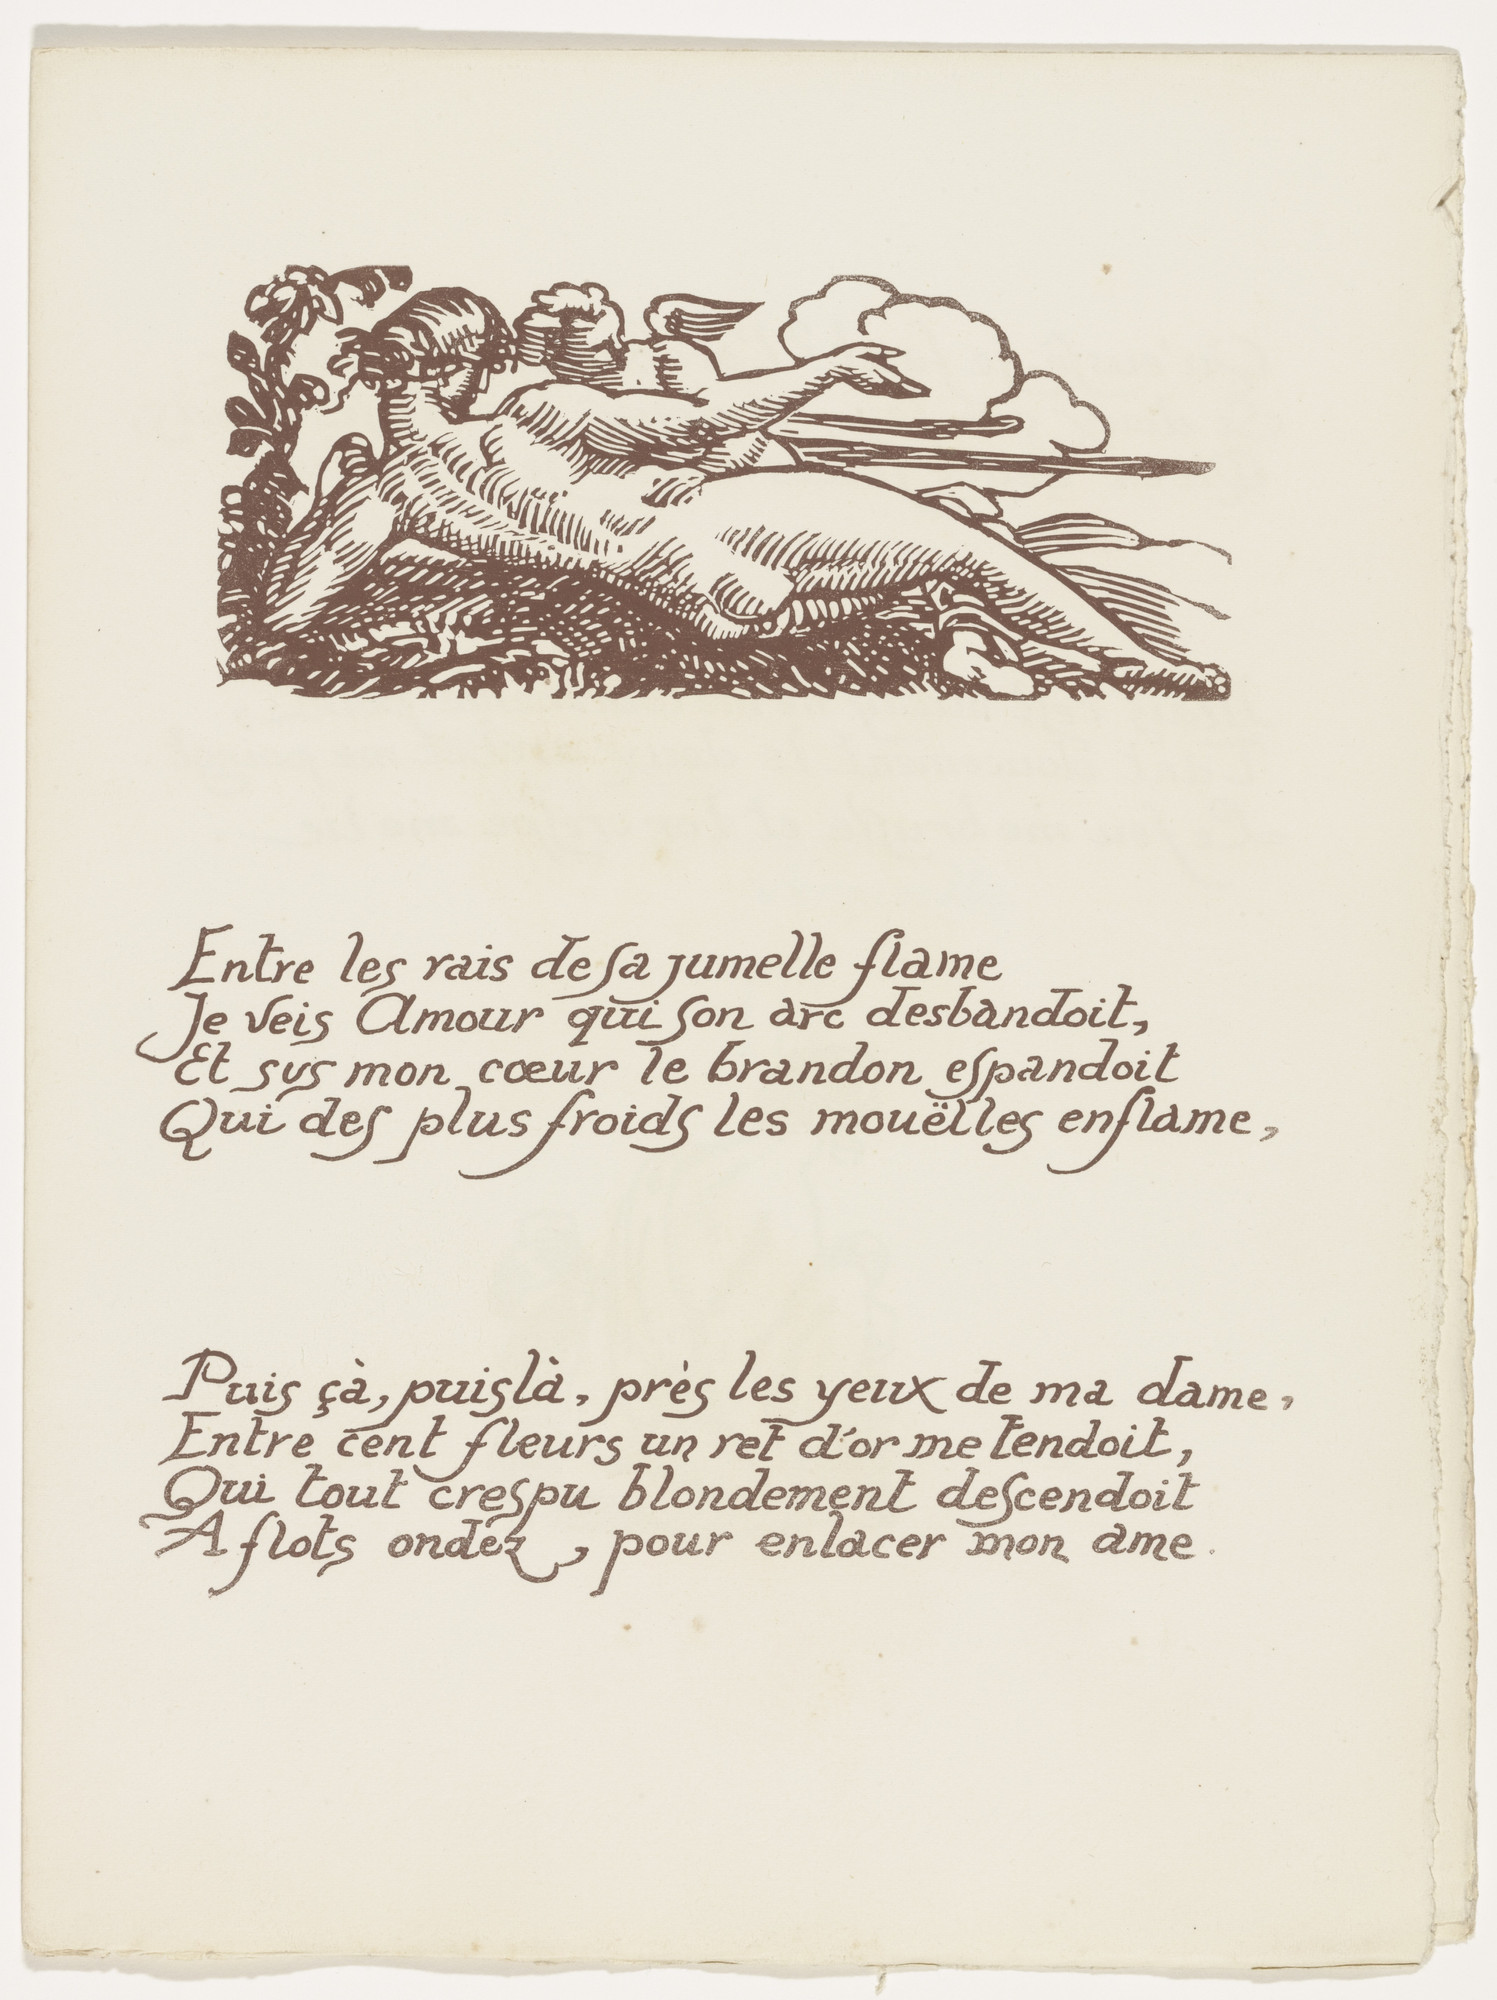 Entre les rais de sa jumelle flame
Je veis Amour qui son arc desbandoit,
Et sus mon cœur le brandon espandoit
Qui des plus froids les mouëlles enflame,
Puis çà, puis là, près les yeux de ma dame,
Entre cent fleurs un ret d'or me tendoit,
Qui tout crespu blondement descendoit
A flots ondez, pour enlacer mon ame.